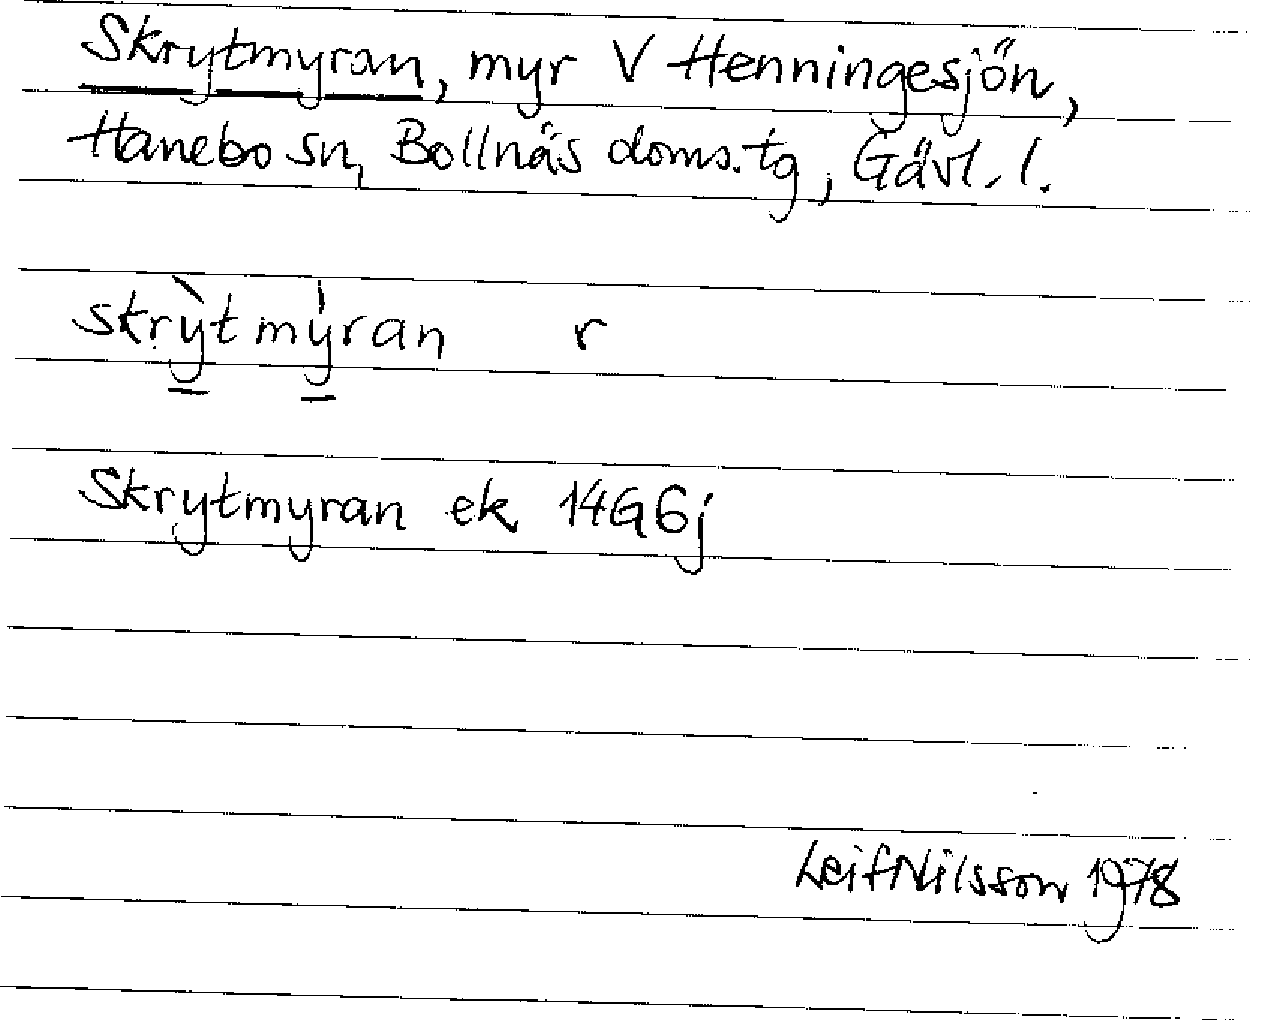 Skrytmyran, myr V Henningesjön,
Hanebo sn, Bollnäs doms.tg, Gävl. l.
skrỳ̲tmý̲ran r
Skrytmyran ek 14G6j
Leif Nilsson 1978